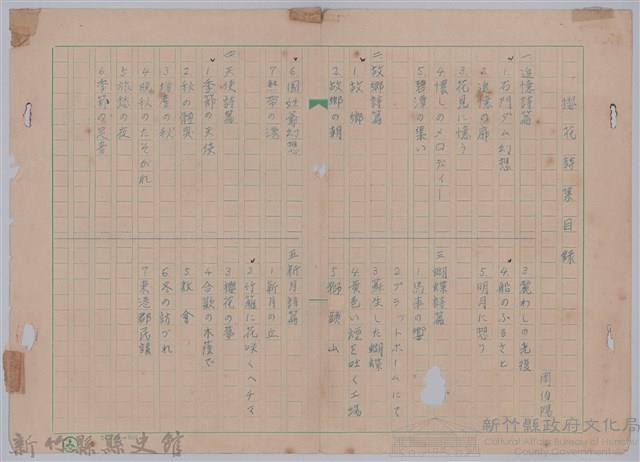 櫻花詩集目錄
周伯陽
一追憶詩篇
1.石門ダム幻想
2.追憶の扉
3.花見に憶う
4.懐しのメロディー
5.碧潭の集い
二故郷詩篇
1.故郷
2.故郷の朝
3.麗わしの老後
4.船のふるさと
5.明月に想う
三蝴蝶詩篇
1.馬車の響
2.プラットホームにて
3.蘇生した蝴蝶
4.黄色い煙を吐く工場
5.獅頭山
7.の港
四天使詩篇
1.季節の天使
2.秋の
3.の秋
4.晩秋のたそがれ
5.旅愁の夜
6.季節の
五新月詩篇
1.新月の丘
2.竹籬に花咲くヘチマ
3.櫻花の夢
4.合歓の木蔭で
5.教會
6.冬の訪づれ
7.東港郡民謡
新竹縣縣史館
新竹縣政府文化局
Cultural Affairs Bureau of Hsinchu County Government